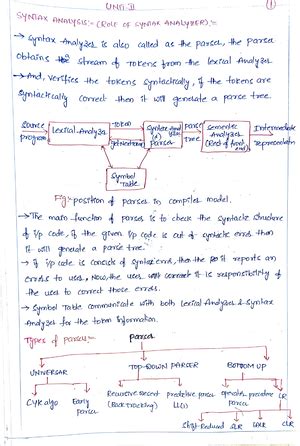 UNIT II
(1)
SYNTAX ANALYSIS:- (ROLE OF SYNTAX ANALYZER):-
→ Syntax Analyzer is also called as the parser, the parser
obtains the stream of tokens from the lexical Analyzer.
→ And, verifies the tokens syntactically, if the tokens are
syntactically correct then it will generate a parse tree.
Source program
Lexical Analyzer
Token
getnexttoken
Syntax Analyzer (or) Parser
Parse tree
Semantic Analyzer (Rest of front end)
Intermediate Representation
Symbol Table
Fig:- position of parser in compiler model.
→ The main function of parser is to check the syntactic structure
of i/p code, if the given i/p code is out of syntactic errors then
it will generate a parse tree.
→ if i/p code is consists of syntax error, then the it reports an
errors to user, Now, the user it is responsibility of
the user to correct those errors.
→ Symbol Table communicate with both Lexical Analyzer & Syntax
Analyzer for the token information.
Types of parser:-
Parser
UNIVERSAL TOP-DOWN PARSER BOTTOM UP
CYK algo Early parser Recursive decent (Backtracking) predictive parser LL(1) operator precedence parser LR
Shift-Reduced SLR LALR CLR